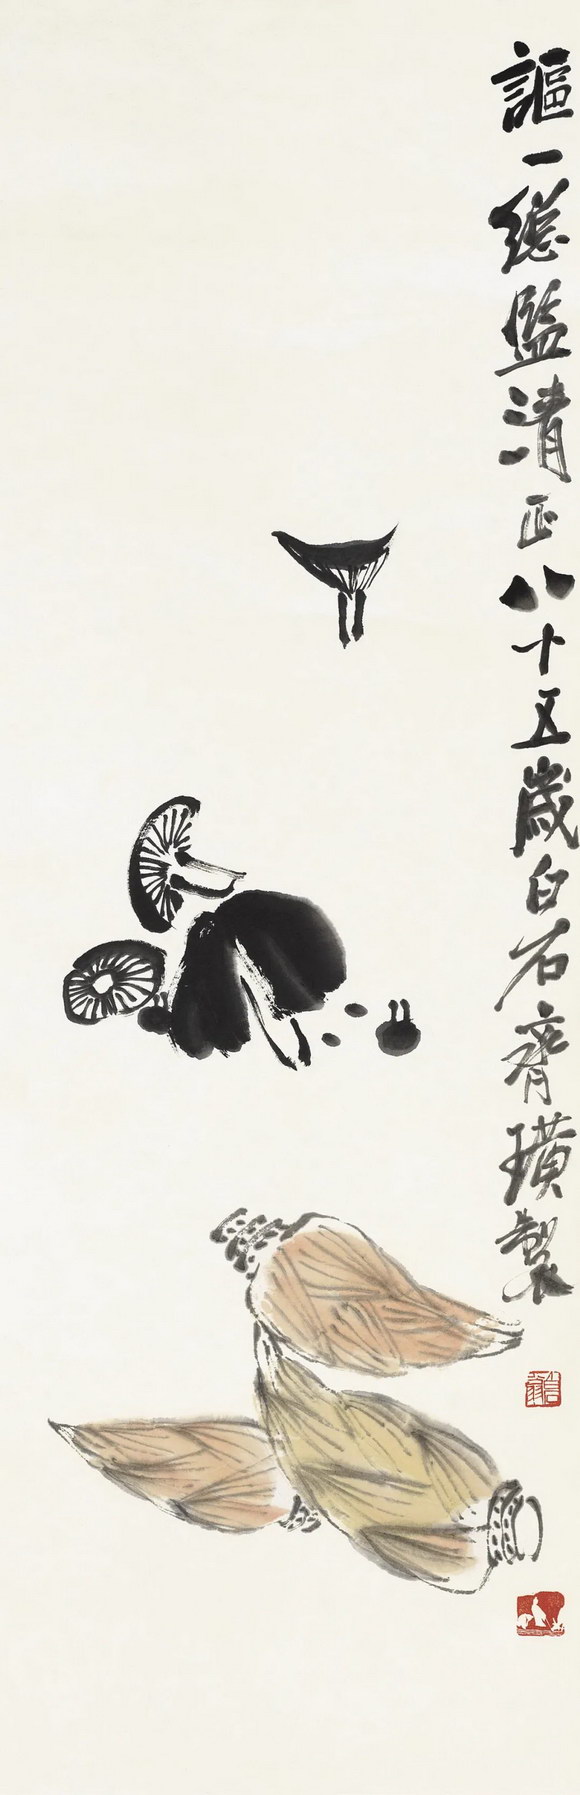 謳一總監清正八十五歲白石齊璜製